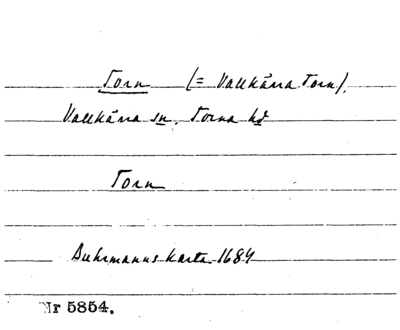 Torn (= Vallkärra Torn).
Vallkärra sn. Torna hd
Torn
Buhrmanns karta 1684
Nr 5854.